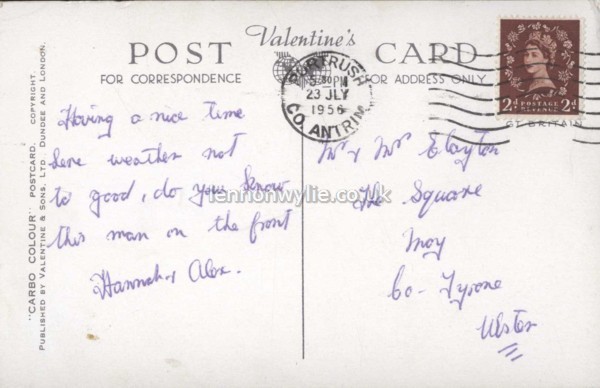 POST Valentine's CARD
FOR CORRESPONDENCE
FOR ADDRESS ONLY
"CARBO COLOUR" POSTCARD. COPYRIGHT.
PUBLISHED BY VALENTINE & SONS, LTD. DUNDEE AND LONDON.
PORTRUSH
5:30PM
23 JLY
1956
CO. ANTRIM
2d POSTAGE REVENUE 2d
GT BRITAIN
Having a nice time
here weather not
to good, do you know
this man on the front
Hannah & Alex.
Mr & Mrs Clayton
The Square
Moy
Co- Tyrone
Ulster
lennonwylie.co.uk